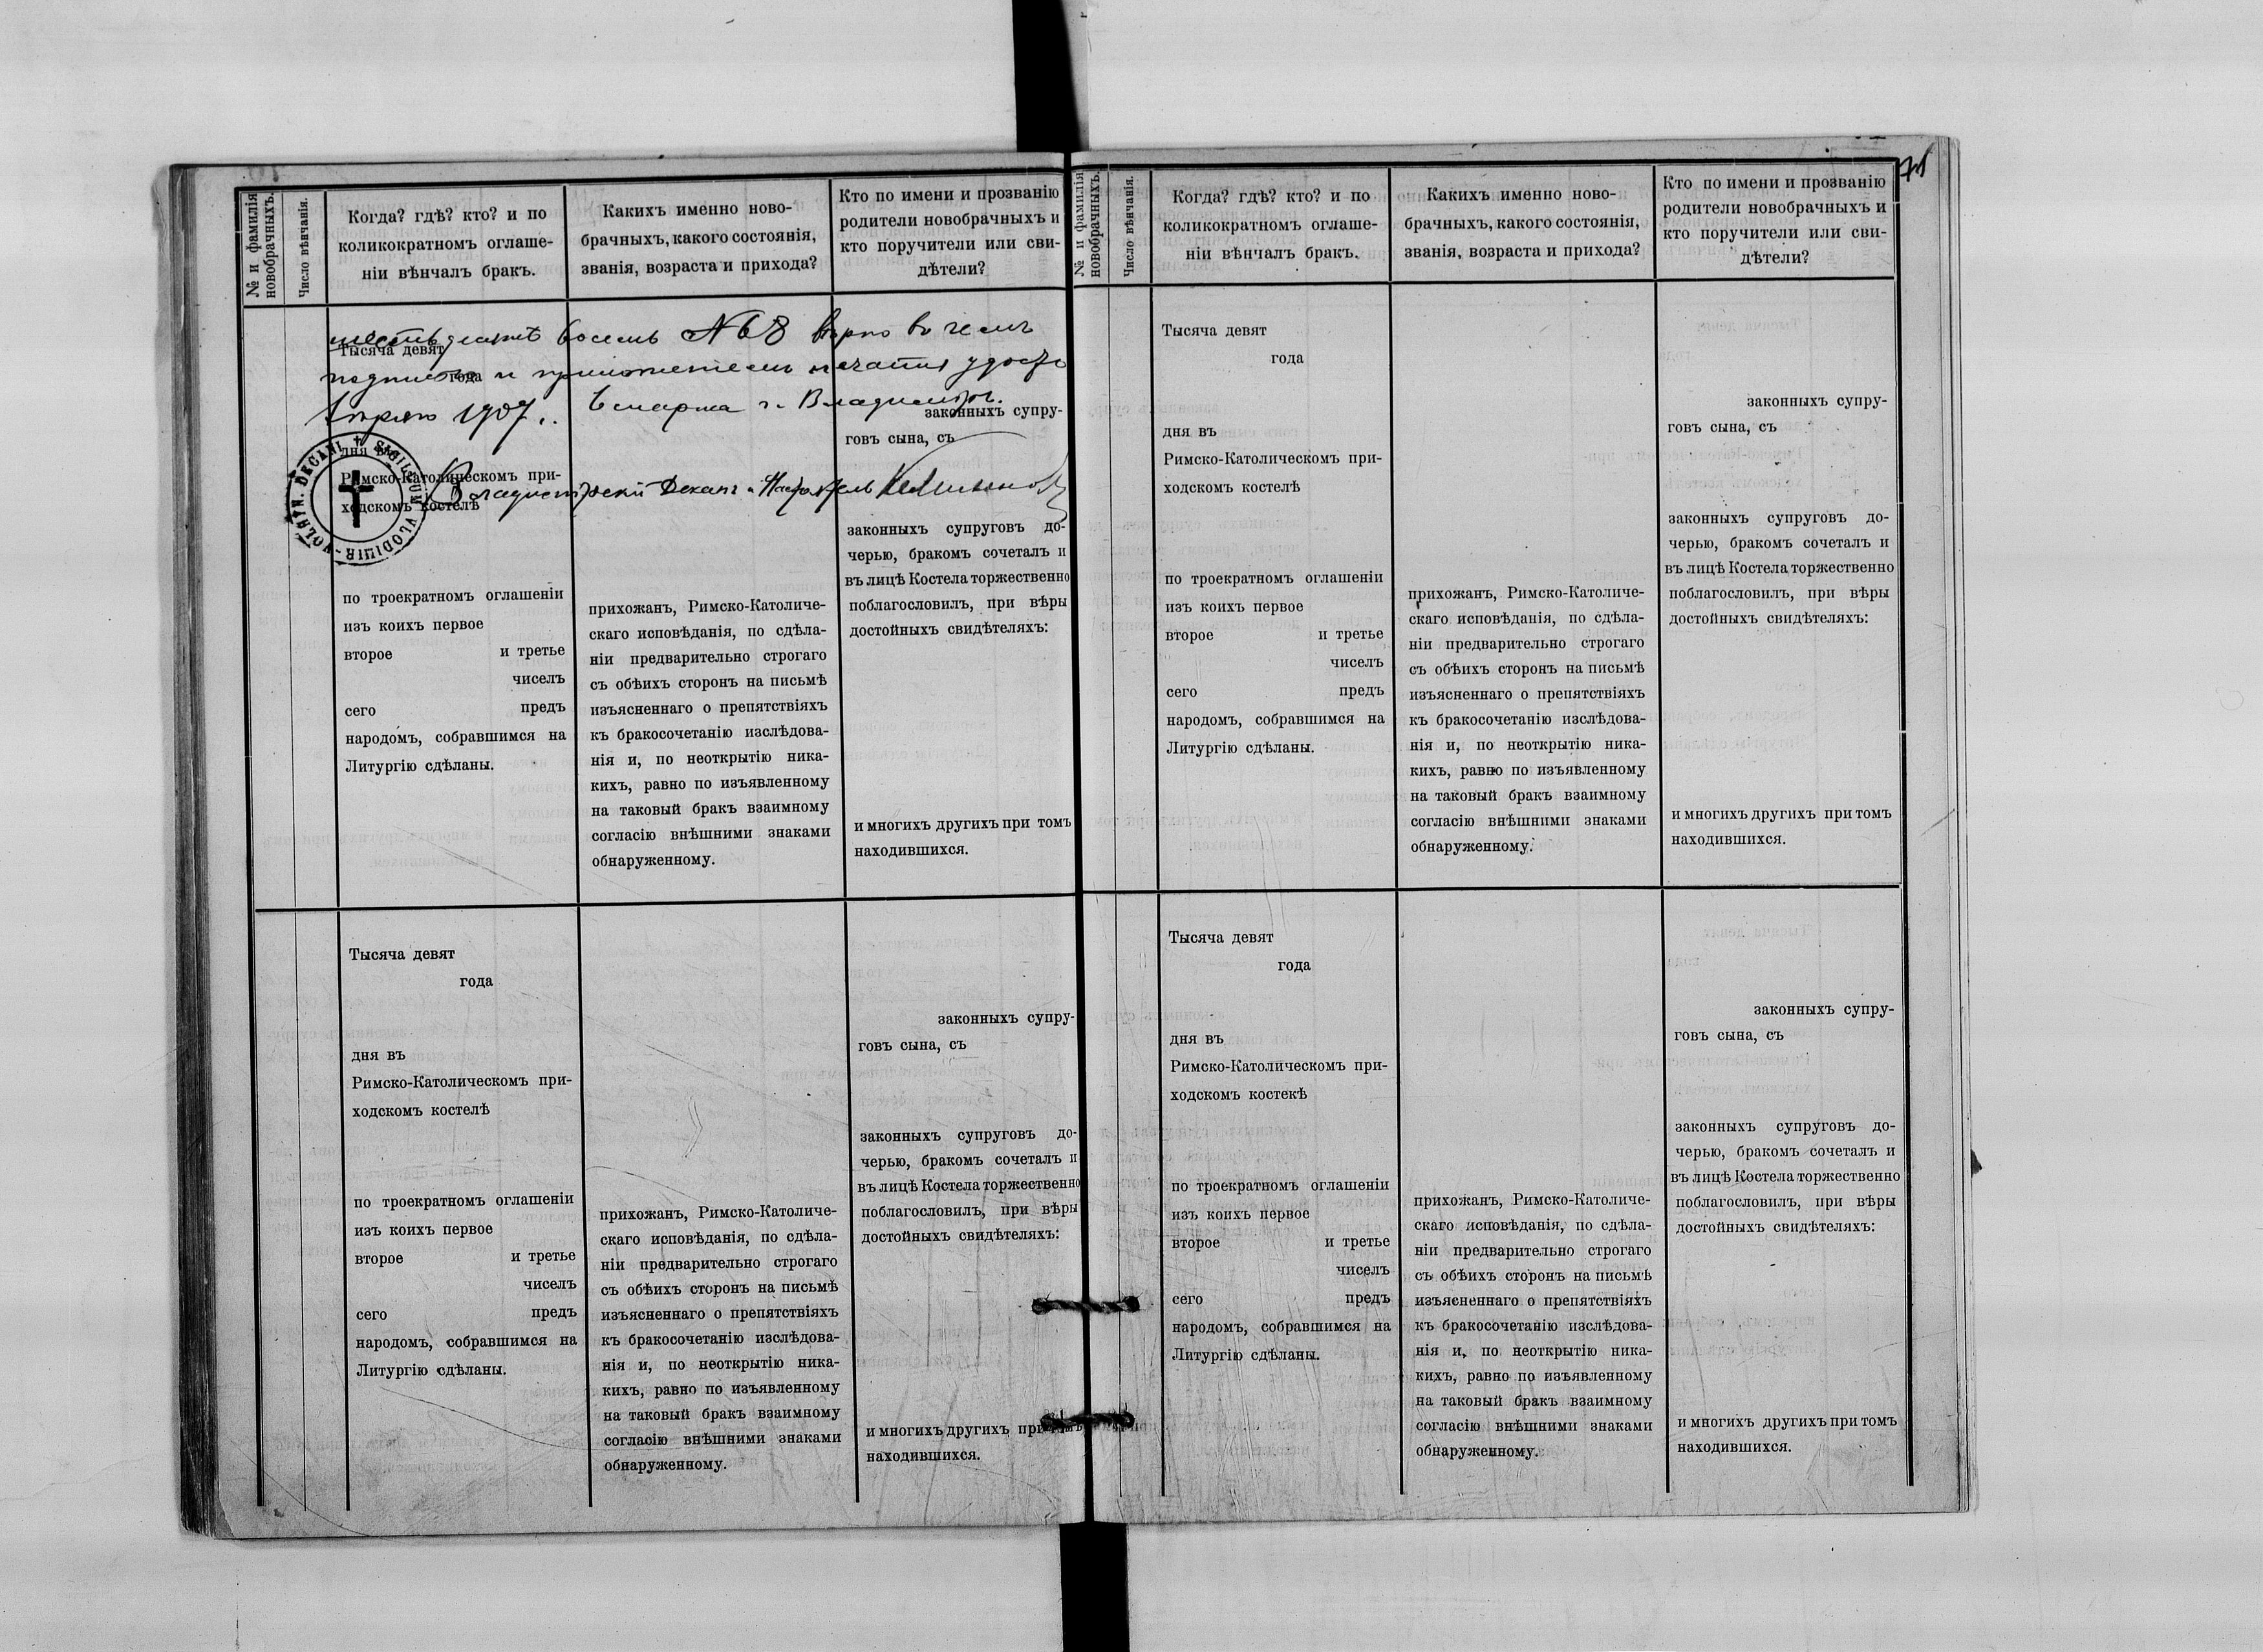 71
№ и фамилія
новобрачныхъ.
Число вѣнчанія.
Когда? гдѣ? кто? и по
коликократномъ оглаше-
ніи вѣнчалъ бракъ.
Какихъ именно ново-
брачныхъ, какого состоянія,
званія, возраста и прихода?
Кто по имени и прозванію
родители новобрачныхъ и
кто поручители или сви-
дѣтели?
шестьдесятъ восемь №68 вѣрно въ чемъ
подписью и приложеніемъ печати удосто
1907. г. Владиміръ.
Владимірскій Деканъ и Настоятель
SIGILLUM VLODIMIR-VOLHYN. DECANI
Тысяча девят
года
дня въ
Римско-Католическомъ при-
ходскомъ костелѣ
по троекратномъ оглашеніи
изъ коихъ первое
второе и третье
чиселъ
сего предъ
народомъ, собравшимся на
Литургію сдѣланы.
прихожанъ, Римско-Католиче-
скаго исповѣданія, по сдѣла-
ніи предварительно строгаго
съ обѣихъ сторонъ на письмѣ
изъясненнаго о препятствіяхъ
къ бракосочетанію изслѣдова-
нія и, по неоткрытію ника-
кихъ, равно по изъявленному
на таковый бракъ взаимному
согласію внѣшними знаками
обнаруженному.
законныхъ супру-
говъ сына, съ
законныхъ супруговъ до-
черью, бракомъ сочеталъ и
въ лицѣ Костела торжественно
поблагословилъ, при вѣры
достойныхъ свидѣтеляхъ:
и многихъ другихъ при томъ
находившихся.
Тысяча девят
года
дня въ
Римско-Католическомъ при-
ходскомъ костелѣ
по троекратномъ оглашеніи
изъ коихъ первое
второе и третье
чиселъ
сего предъ
народомъ, собравшимся на
Литургію сдѣланы.
прихожанъ, Римско-Католиче-
скаго исповѣданія, по сдѣла-
ніи предварительно строгаго
съ обѣихъ сторонъ на письмѣ
изъясненнаго о препятствіяхъ
къ бракосочетанію изслѣдова-
нія и, по неоткрытію ника-
кихъ, равно по изъявленному
на таковый бракъ взаимному
согласію внѣшними знаками
обнаруженному.
законныхъ супру-
говъ сына, съ
законныхъ супруговъ до-
черью, бракомъ сочеталъ и
въ лицѣ Костела торжественно
поблагословилъ, при вѣры
достойныхъ свидѣтеляхъ:
и многихъ другихъ при томъ
находившихся.
№ и фамилія
новобрачныхъ.
Число вѣнчанія.
Когда? гдѣ? кто? и по
коликократномъ оглаше-
ніи вѣнчалъ бракъ.
Какихъ именно ново-
брачныхъ, какого состоянія,
званія, возраста и прихода?
Кто по имени и прозванію
родители новобрачныхъ и
кто поручители или сви-
дѣтели?
Тысяча девят
года
дня въ
Римско-Католическомъ при-
ходскомъ костелѣ
по троекратномъ оглашеніи
изъ коихъ первое
второе и третье
чиселъ
сего предъ
народомъ, собравшимся на
Литургію сдѣланы.
прихожанъ, Римско-Католиче-
скаго исповѣданія, по сдѣла-
ніи предварительно строгаго
съ обѣихъ сторонъ на письмѣ
изъясненнаго о препятствіяхъ
къ бракосочетанію изслѣдова-
нія и, по неоткрытію ника-
кихъ, равно по изъявленному
на таковый бракъ взаимному
согласію внѣшними знаками
обнаруженному.
законныхъ супру-
говъ сына, съ
законныхъ супруговъ до-
черью, бракомъ сочеталъ и
въ лицѣ Костела торжественно
поблагословилъ, при вѣры
достойныхъ свидѣтеляхъ:
и многихъ другихъ при томъ
находившихся.
Тысяча девят
года
дня въ
Римско-Католическомъ при-
ходскомъ костекѣ
по троекратномъ оглашеніи
изъ коихъ первое
второе и третье
чиселъ
сего предъ
народомъ, собравшимся на
Литургію сдѣланы.
прихожанъ, Римско-Католиче-
скаго исповѣданія, по сдѣла-
ніи предварительно строгаго
съ обѣихъ сторонъ на письмѣ
изъясненнаго о препятствіяхъ
къ бракосочетанію изслѣдова-
нія и, по неоткрытію ника-
кихъ, равно по изъявленному
на таковый бракъ взаимному
согласію внѣшними знаками
обнаруженному.
законныхъ супру-
говъ сына, съ
законныхъ супруговъ до-
черью, бракомъ сочеталъ и
въ лицѣ Костела торжественно
поблагословилъ, при вѣры
достойныхъ свидѣтеляхъ:
и многихъ другихъ при томъ
находившихся.